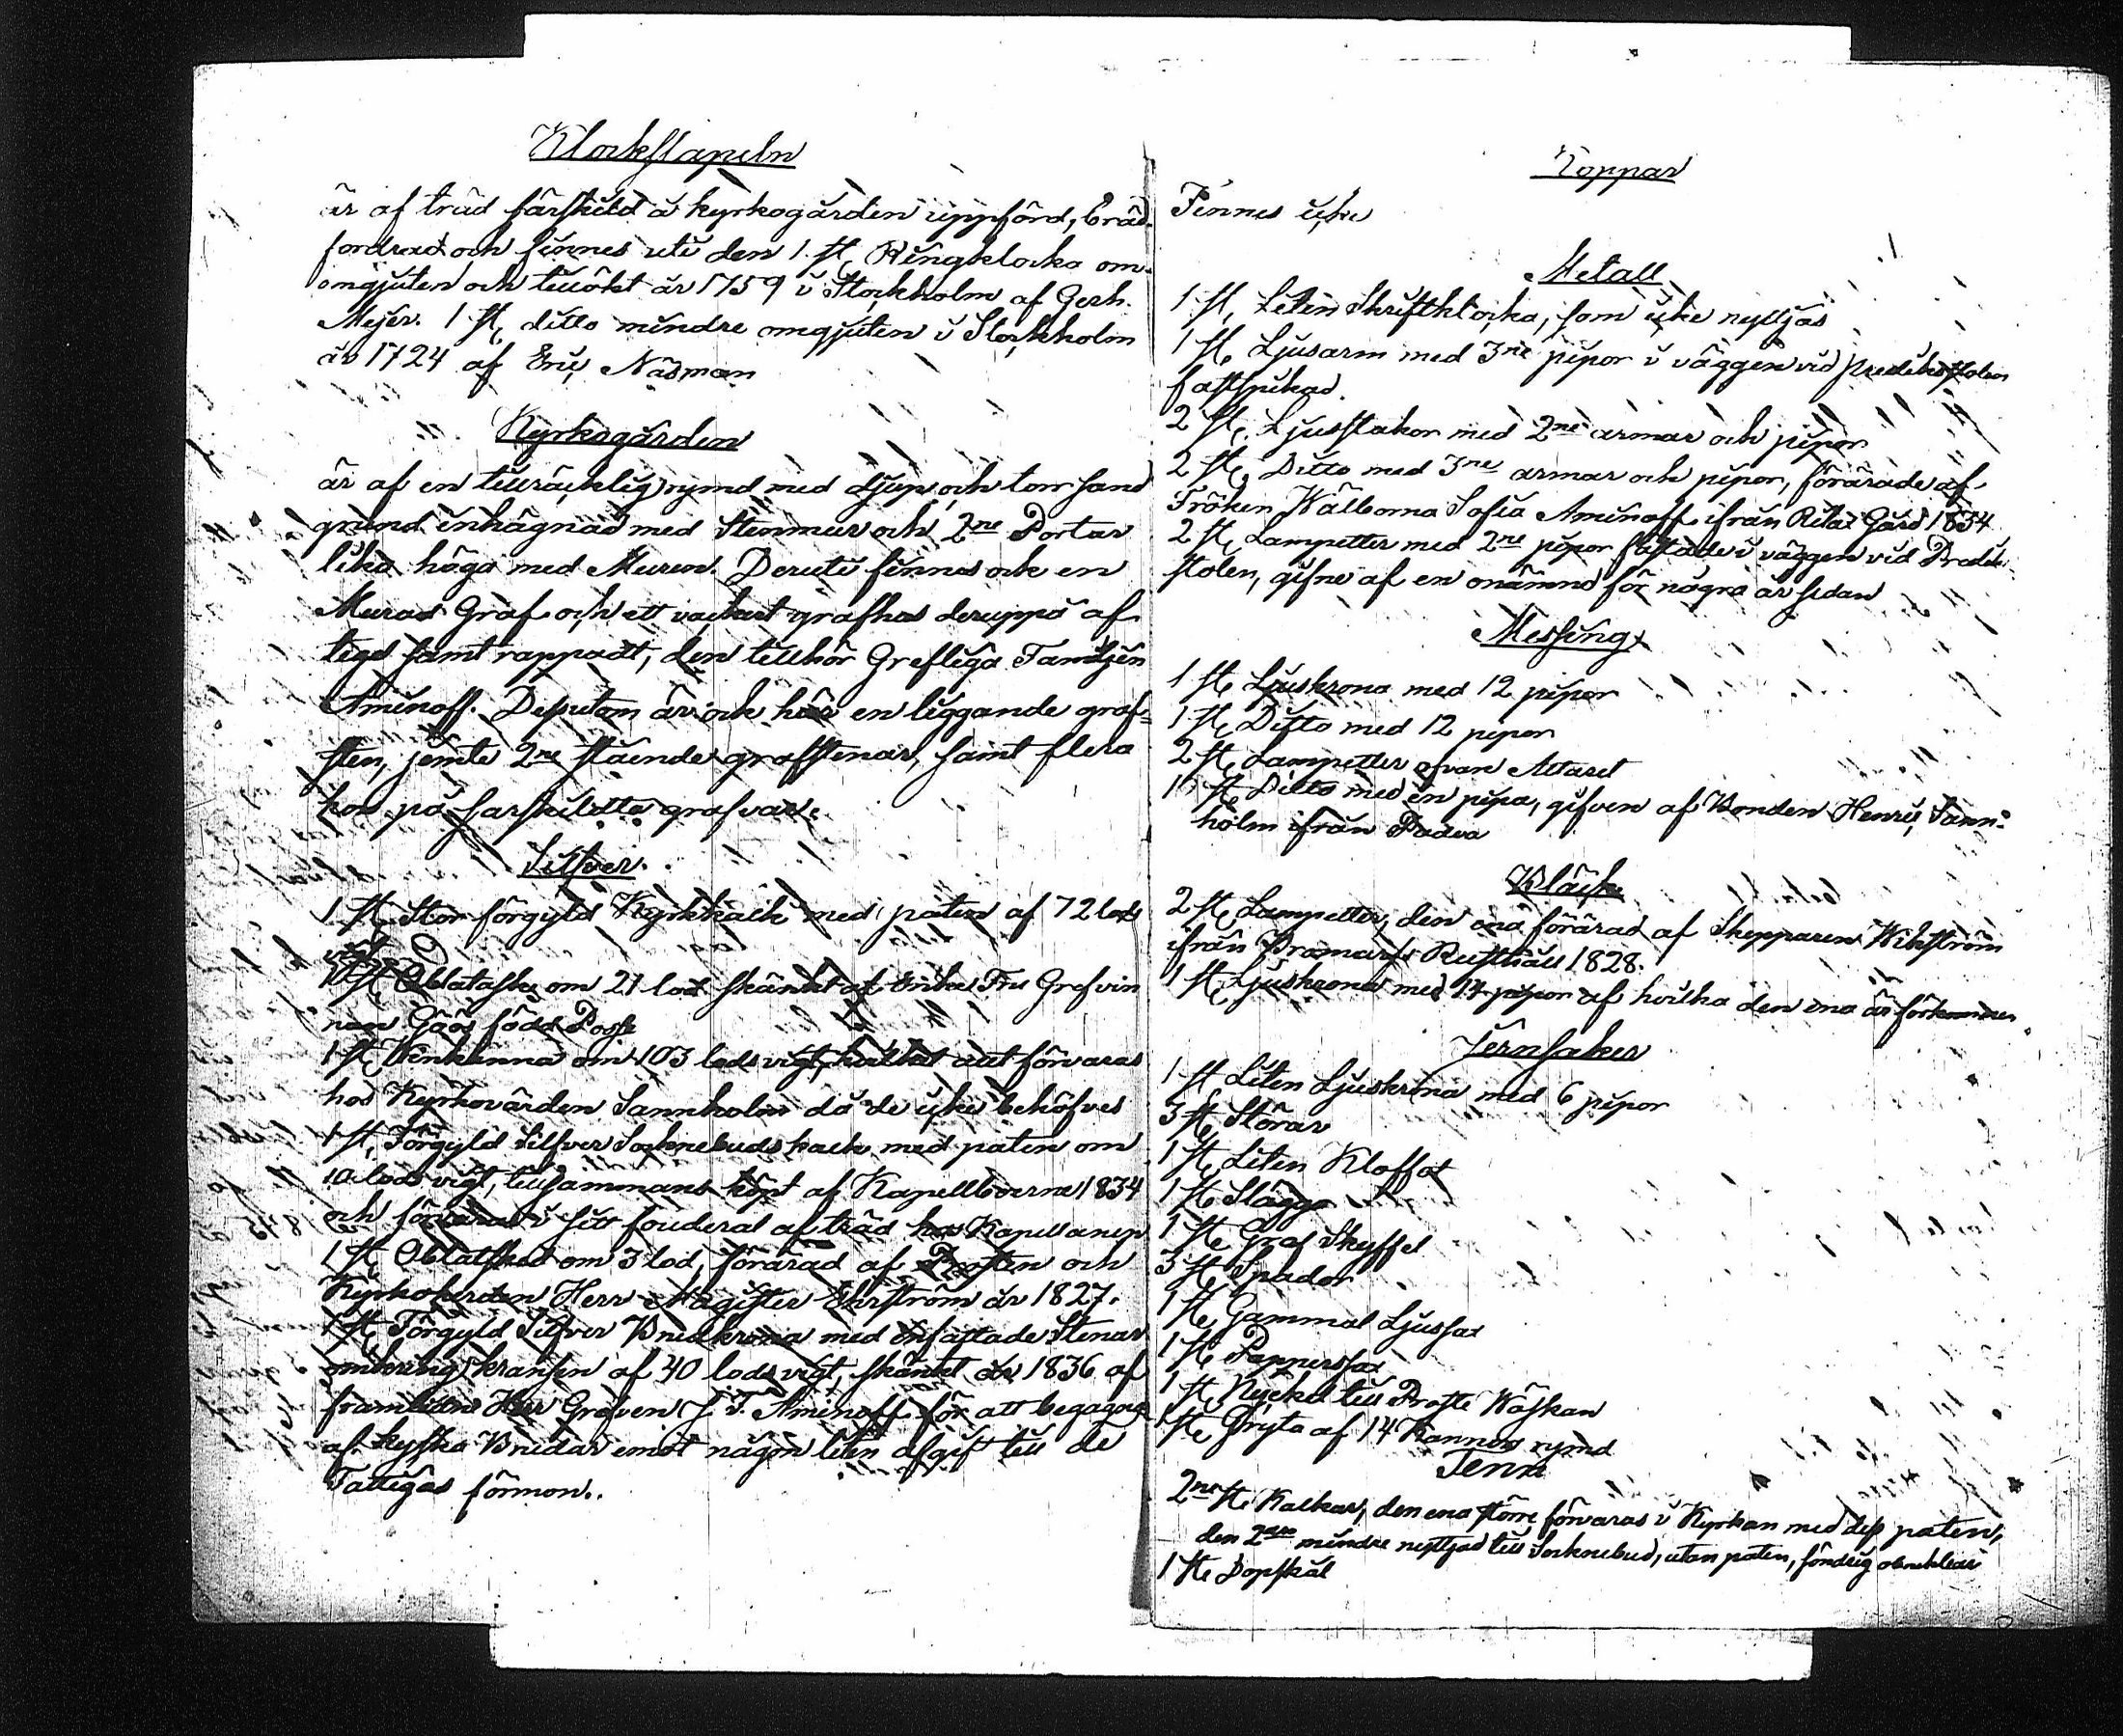 Klockstapeln
är af träd särskild å kyrkogården uppförd, bräd-
fordrad och finnes uti den 1 st, Ringklocka om-
omgjuten och tillökt år 1759 i Stockholm af Gerh.
Mejer. 1 st, ditto mindre omgjuten i Stockholm
år 1724 af Eric Näsman
Kyrkogården
är af en tillräcklig rymd med djup och torr sand
grund inhägnad med Stenmur och 2ne Portar
lika höga med Muren. Deruti finnes ock en
Murad Graf och ett vackert grafhus deruppå af
tegel samt rappadt, den tillhör Grefliga Familjen
Aminoff. Dessutom är ock här en liggande graf=
sten, jemte 2ne stående grafstenar, samt flera
kors på särskildta grafvar.
Silfver.
1 St, Stor förgyld Kyrkkalk med paten af 72 lods
vigt
1 St, Oblatask om 21 lod skänkt af Enke Fru Grefvin
nan Göös född Posse
1 St, Vinkanna om 103 lods vigt, hvilket allt förvaras
hos Kyrkovärden Sannholm då de icke behöfves
1 St, Förgyld Silfver Socknebuds kalk med paten om
10 lods vigt, tillsammans köpt af Kapellboerna 1834
och förvaras i sitt fouderal af träd hos Kapellanen
1 St Oblatsked om 3 lod, förärad af Prosten och
Kyrkoherden Herr Magister Ehrström år 1827.
1 St, Förgyld Silfver Brudkrona med infattade Stenar
omkring kransen af 40 lods vigt, skänkt år 1836 af
framlidne Herr Grefven J. F. Aminoff för att begagnas
af kyska Brudar emot någon liten afgift till de
Fattigas förmon.
Koppar
Finnes icke
Metall
1 St, Liten Skriftklocka, som icke nyttjas
1 St, Ljusarm med 3ne pipor i väggen vid predikostolen
fastspikad.
2 St, Ljusstakar med 2ne armar och pipor
2 St, Ditto med 3ne armar och pipor, förärade af
Fröken Wälborna Sofia Aminoff ifrån Rilax Gård 1834
2 St, Lampetter med 2ne pipor fästade i väggen vid Predik
stolen, gifne af en onämnd för några år sedan
Messing
1 St, Ljuskrona med 12 pipor
1 St, Ditto med 12 pipor
2 St, Lampetter ofvan Altaret
1 St, Ditto med en pipa, gifven af Bonden Henric Sann-
holm ifrån Padva
Bläck
2 St, Lampetter, den ena förärad af Skepparen Wikström
ifrån Bromarfs Rusthåll 1828.
1 St, Ljuskrona med 14 pipor af hvilka den ena är förkommen
Jernsaker
1 St Liten Ljuskrona med 6 pipor
3 St, Störar
1 St, Liten Kloffot
1 St Slägga
1 St, Graf Skyffel
3 St, Spador
1 St, Gammal Ljussax
1 St, Papperssax
1 St, Nyckel till Proste Wäskan
1 St, Gryta af 14 Kannors rymd
Tenn
2ne St, Kalkar, den ena större förvaras i Kyrkan med dess paten,
den 2dra mindre nyttjad till Socknebud, utan paten, söndrig
1 St, Dopskål